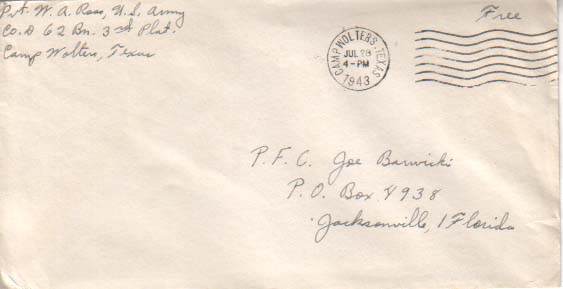 Pvt. W. A. Ross, U.S. Army
Co. D 62 Bn. 3rd Plat.
Camp Wolters, Texas
Free
CAMP WOLTERS, TEXAS
JUL 28
4-PM
1943
P.F.C. Joe Barwicki
P.O. Box 4938
Jacksonville, 1 Florida